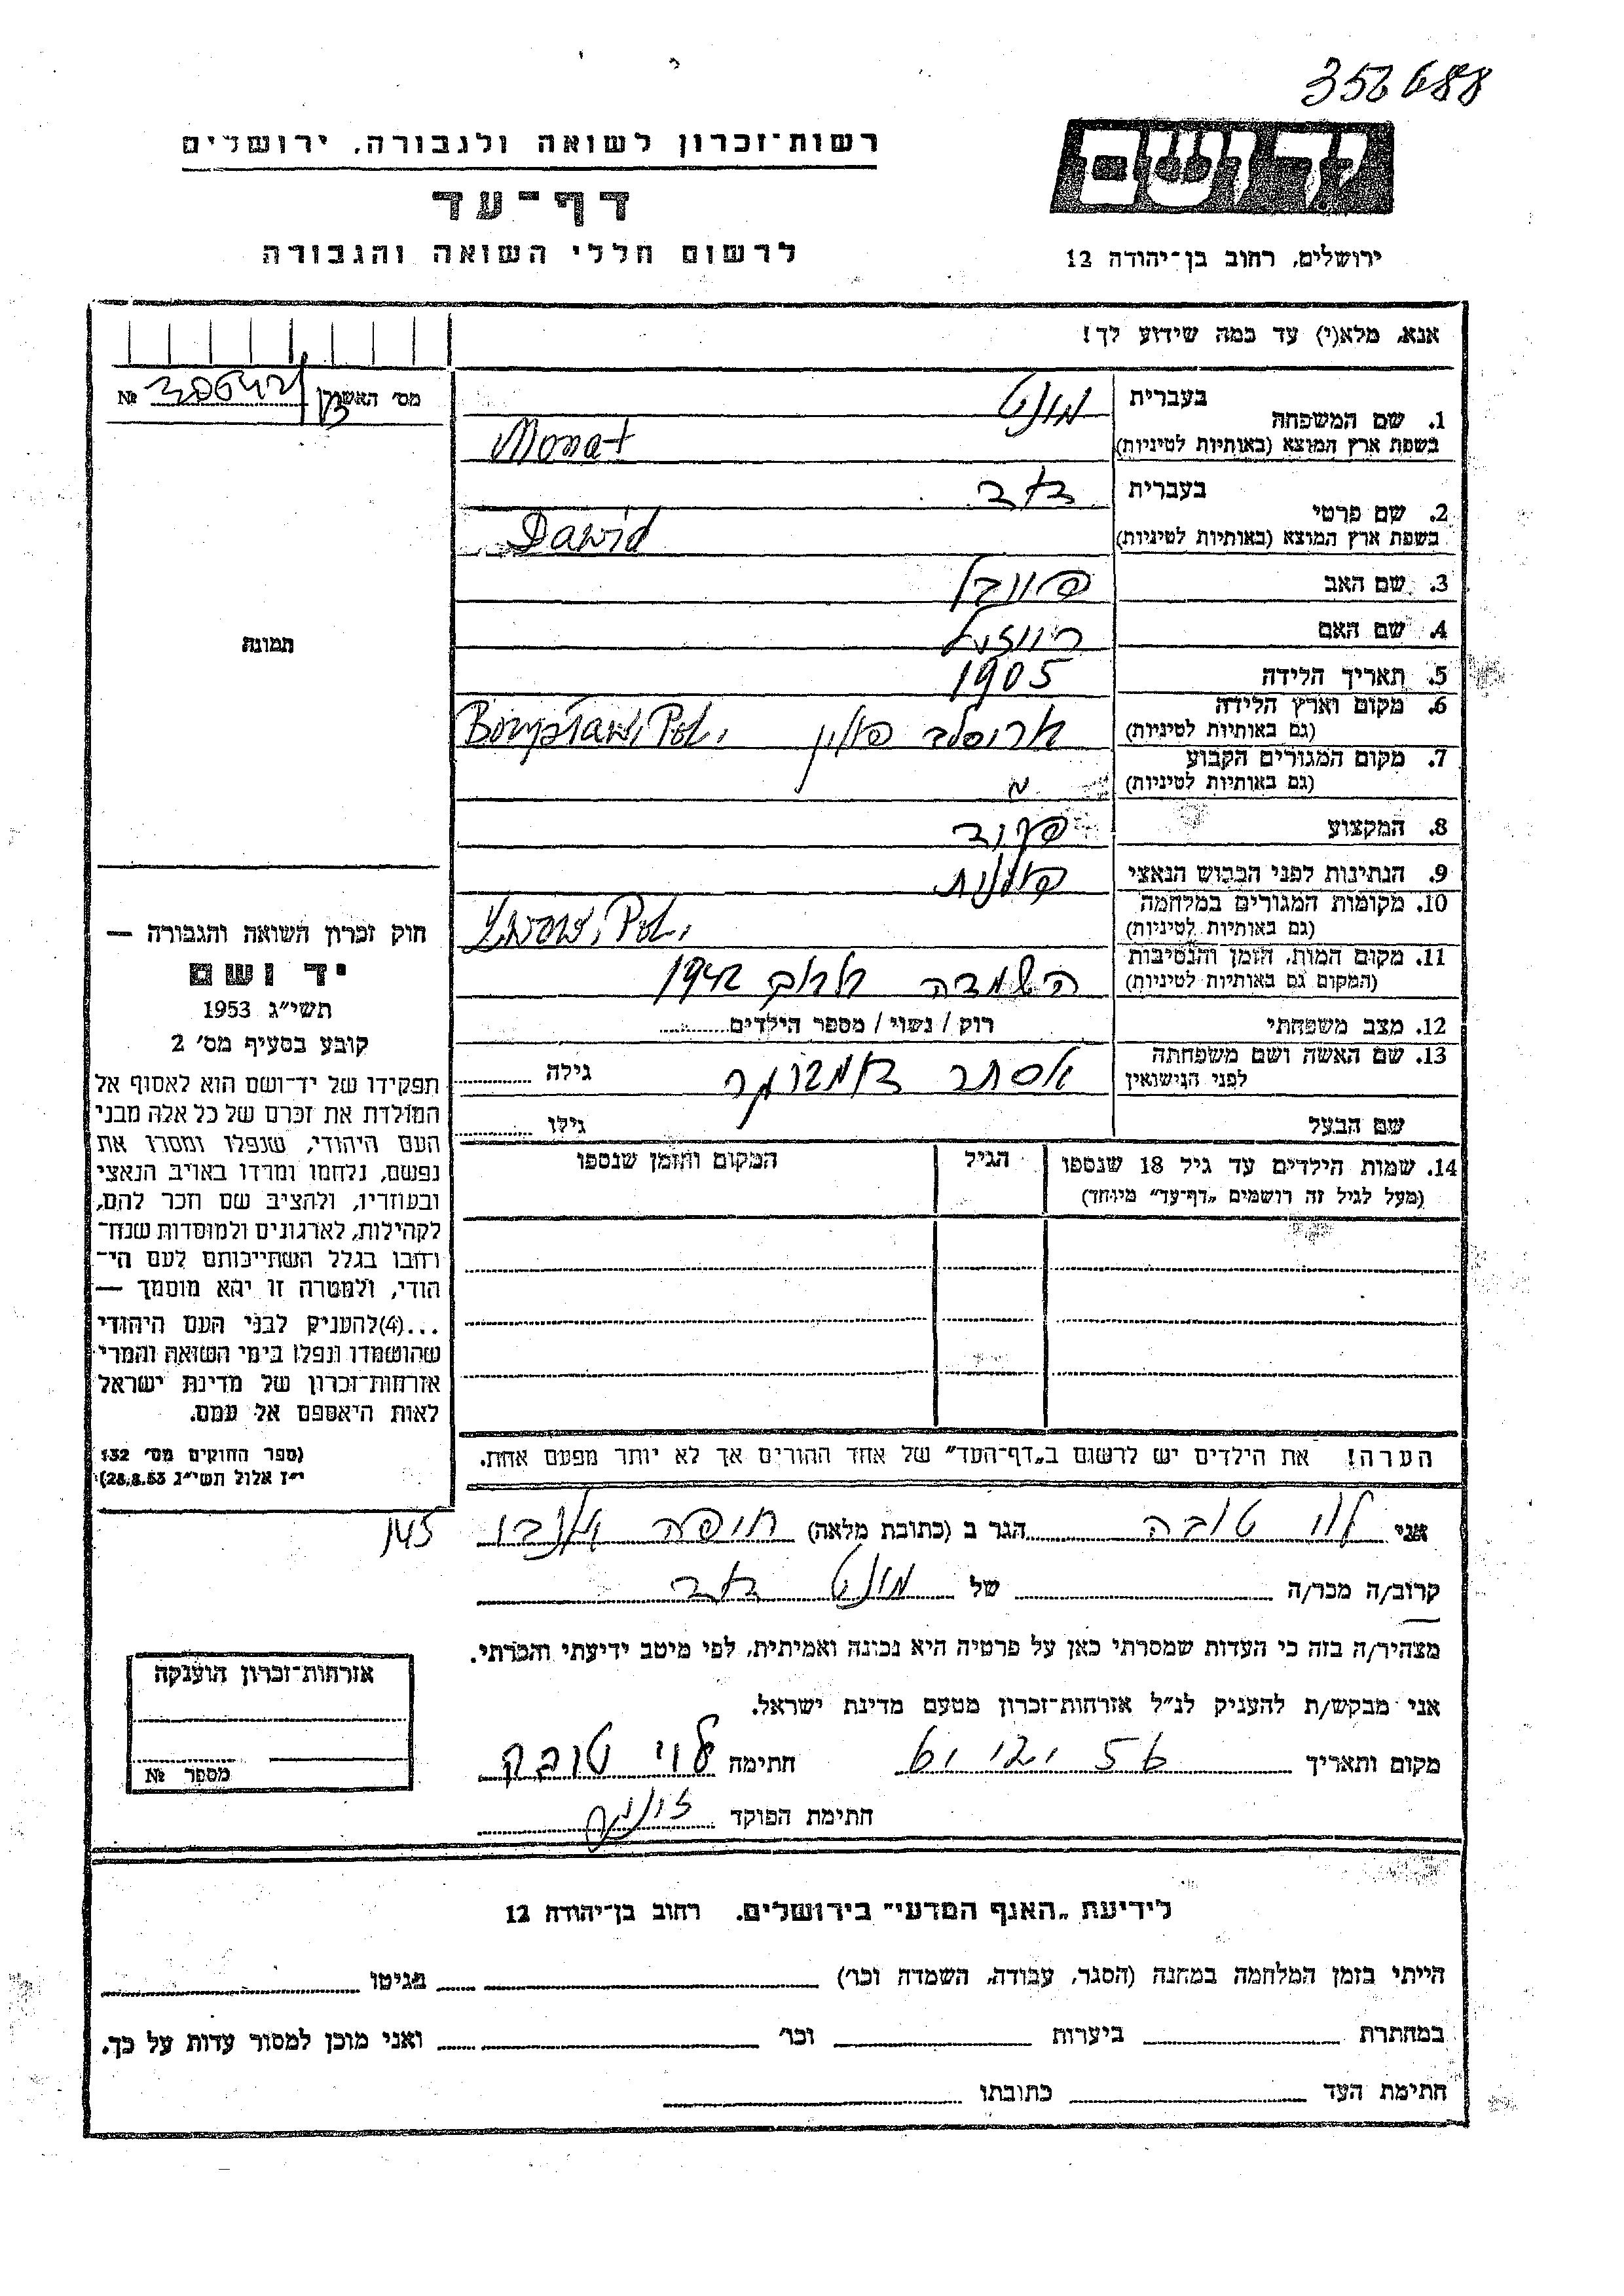 352688
רשות־זכרון לשואה ולגבורה, ירושלים
יד ושם
דף־עד
לרשום חללי השואה והגבורה
ירושלים, רחוב בן־יהודה 12
אנא, מלא(י) עד כמה שידוע לך!
מס' האשרון № 30642
1. שם המשפחה
בעברית מונט
בשפת ארץ המוצא (באותיות לטיניות) Monat
2. שם פרטי
בעברית דוד
בשפת ארץ המוצא (באותיות לטיניות) Dawid
3. שם האב
4. שם האם
5. תאריך הלידה 1905
6. מקום וארץ הלידה
(גם באותיות לטיניות) פולין Pol.
7. מקום המגורים הקבוע
(גם באותיות לטיניות)
8. המקצוע פקיד
9. הנתינות לפני הכבוש הנאצי פולנית
10. מקומות המגורים במלחמה
(גם באותיות לטיניות) Lwow, Pol.
11. מקום המות, הזמן והנסיבות
(המקום גם באותיות לטיניות) השמדה 1942
12. מצב משפחתי רוק / נשוי / מספר הילדים
13. שם האשה ושם משפחתה
לפני הנישואין אסתר גילה
שם הבעל גילו
14. שמות הילדים עד גיל 18 שנספו הגיל המקום והזמן שנספו
(מעל לגיל זה רושמים „דף־עד" מיוחד)
הערה! את הילדים יש לרשום ב„דף־העד" של אחד ההורים אך לא יותר מפעם אחת.
תמונה
חוק זכרון השואה והגבורה —
יד ושם
תשי"ג 1953
קובע בסעיף מס' 2
תפקידו של יד־ושם הוא לאסוף אל
המולדת את זכרם של כל אלה מבני
העם היהודי, שנפלו ומסרו את
נפשם, נלחמו ומרדו באויב הנאצי
ובעוזריו, ולהציב שם וזכר להם,
לקהילות, לארגונים ולמוסדות שנח־
רבו בגלל השתייכותם לעם הי־
הודי, ולמטרה זו יהא מוסמך —
...(4)להעניק לבני העם היהודי
שהושמדו ונפלו בימי השואה והמרי
אזרחות־זכרון של מדינת ישראל
לאות היאספם אל עמם.
(ספר החוקים מס' 132
י"ז אלול תשי"ג 28.8.53)
אני לוי טובה הגר ב (כתובת מלאה) חיפה 145
קרוב/ה מכר/ה של מונט דוד
מצהיר/ה בזה כי העדות שמסרתי כאן על פרטיה היא נכונה ואמיתית, לפי מיטב ידיעתי והכרתי.
אני מבקש/ת להעניק לנ"ל אזרחות־זכרון מטעם מדינת ישראל.
מקום ותאריך 56 חתימה לוי טובה
חתימת הפוקד
אזרחות־זכרון הוענקה
מספר №
לידיעת „האגף המדעי" בירושלים, רחוב בן־יהודה 12
הייתי בזמן המלחמה במחנה (הסגר, עבודה, השמדה וכו') בגיטו
במחתרת ביערות וכו' ואני מוכן למסור עדות על כך.
חתימת העד כתובתו